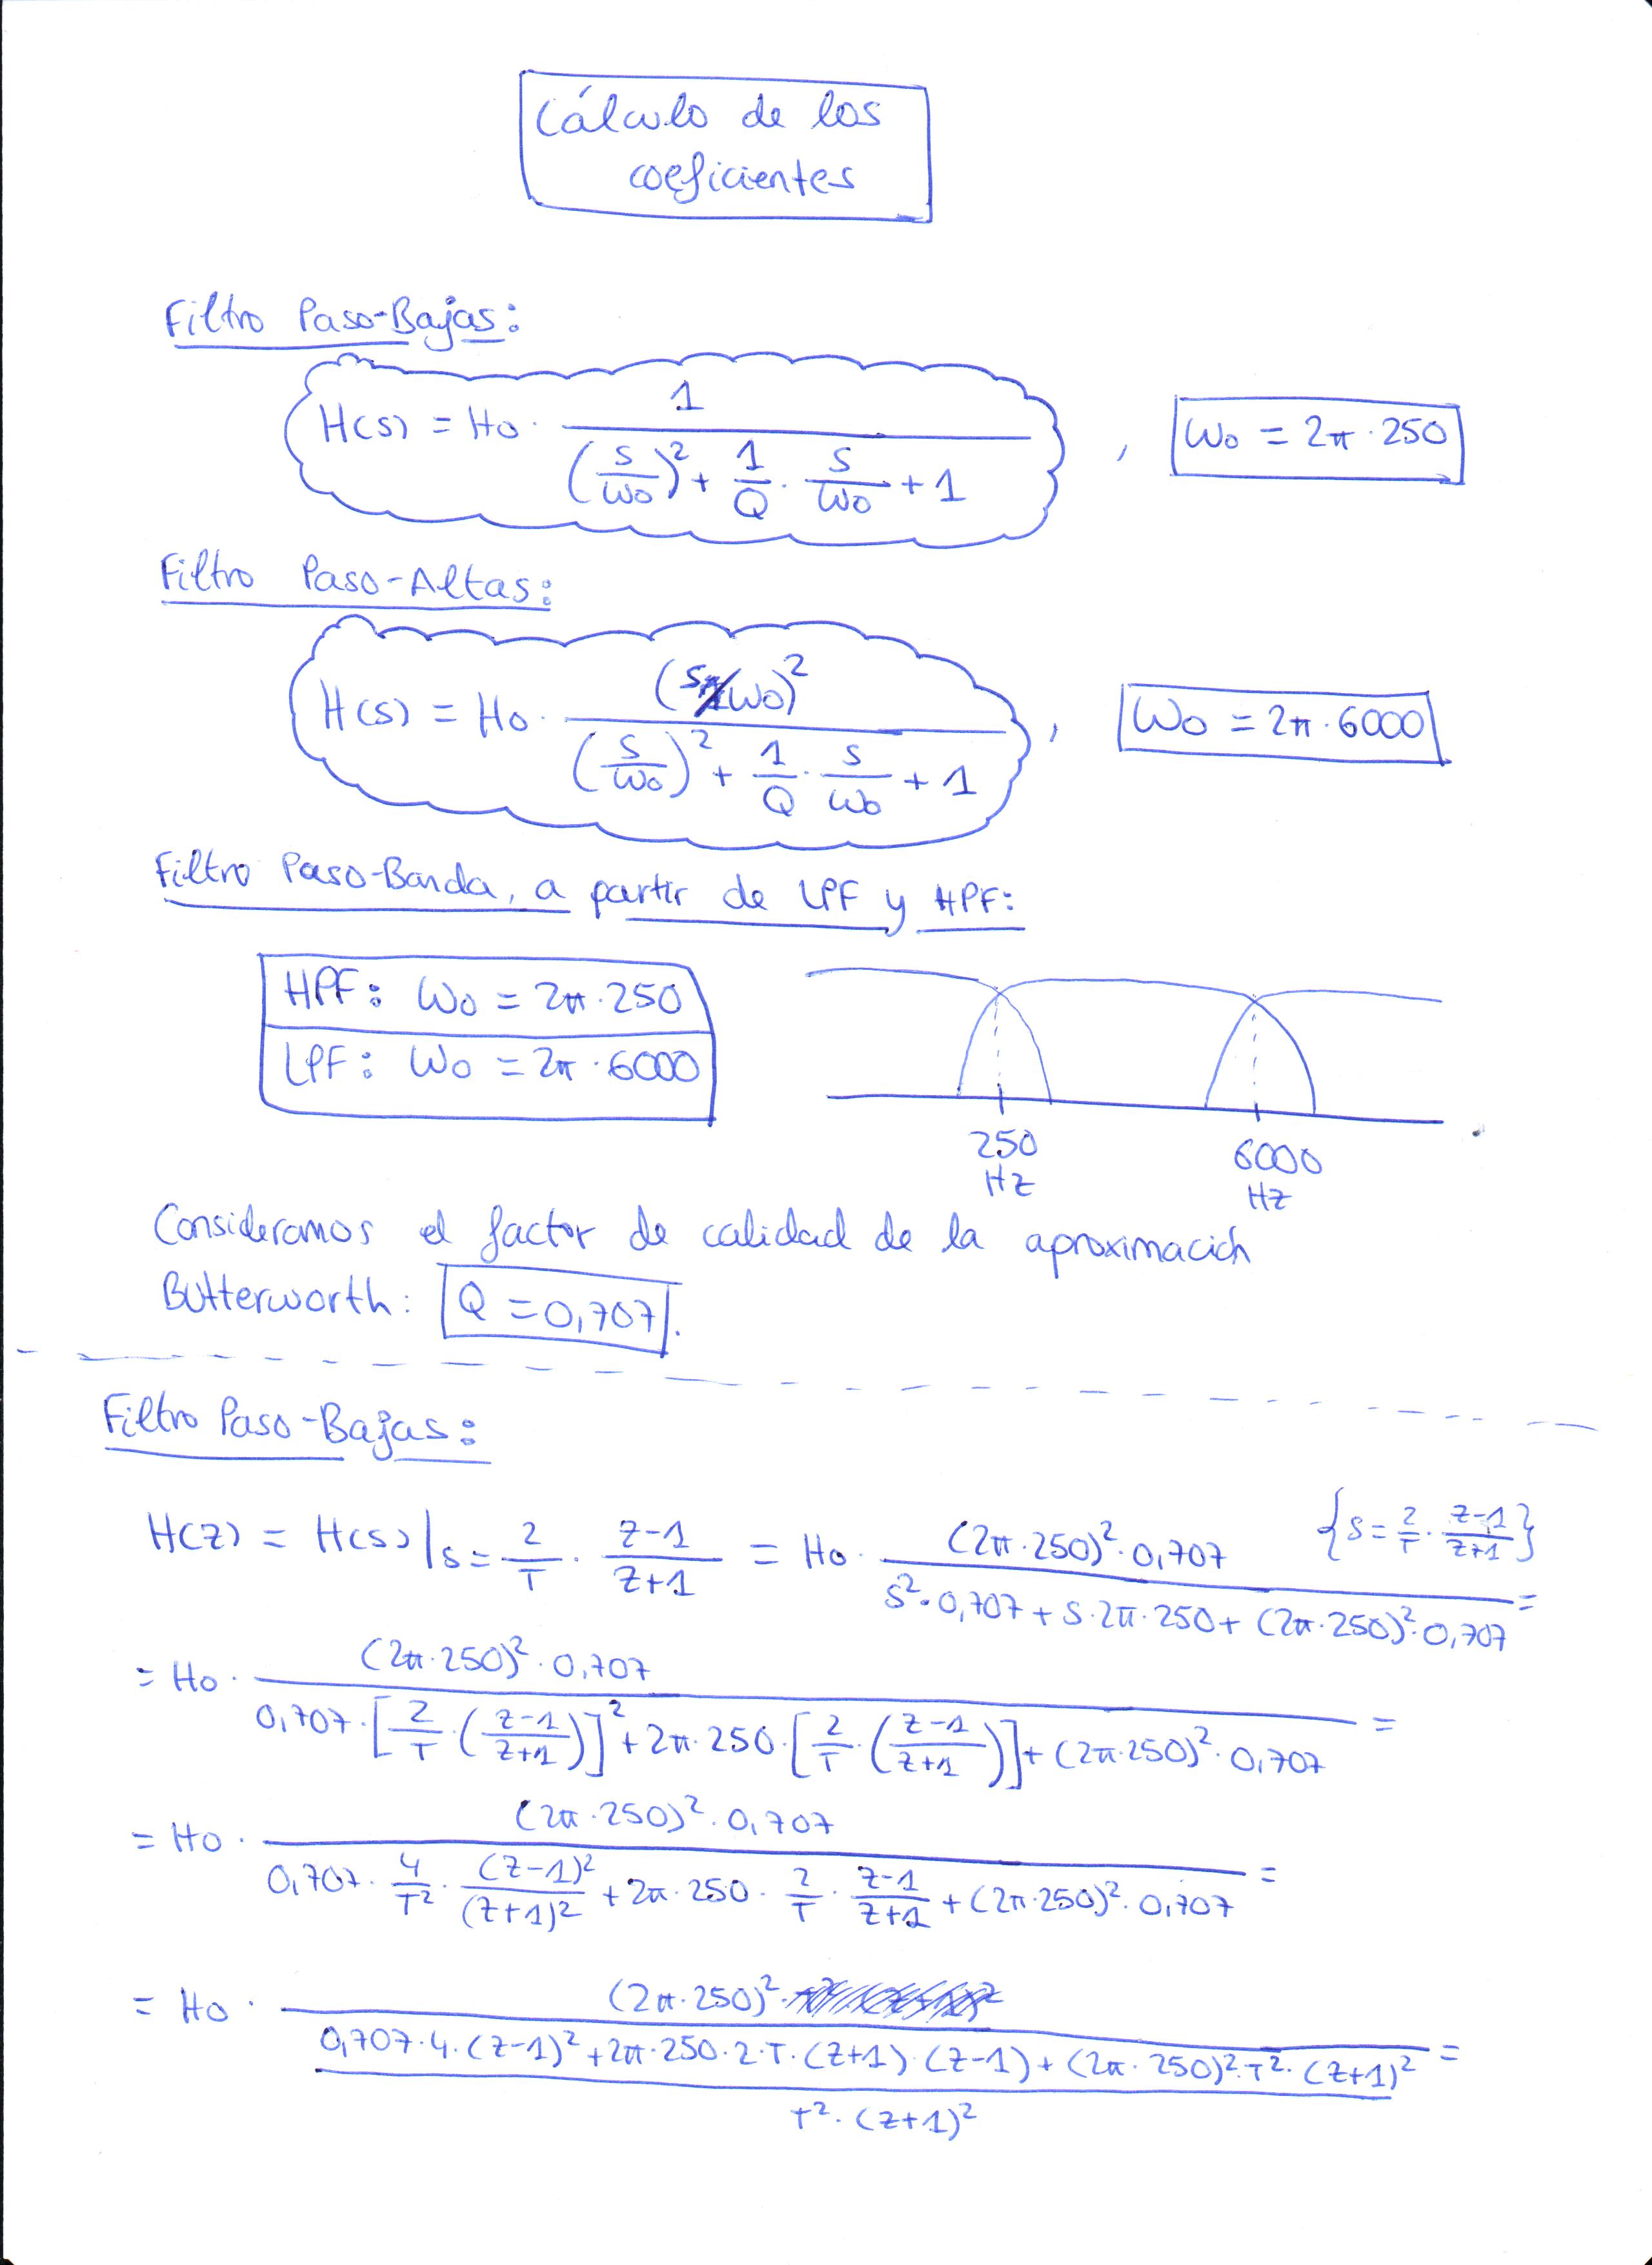 Cálculo de los
coeficientes
Filtro Paso-Bajas:
H(s) = Ho · 1 / ((s/ωo)² + 1/Q · s/ωo + 1) , ωo = 2π·250
Filtro Paso-Altas:
H(s) = Ho · (s/ωo)² / ((s/ωo)² + 1/Q · s/ωo + 1) , ωo = 2π·6000
Filtro Paso-Banda, a partir de LPF y HPF:
HPF: ωo = 2π·250
LPF: ωo = 2π·6000
250 Hz
6000 Hz
Consideramos el factor de calidad de la aproximación
Butterworth: Q = 0,707.
Filtro Paso-Bajas:
H(z) = H(s)|s = 2/T · (z-1)/(z+1) = Ho · (2π·250)²·0,707 / (s²·0,707 + s·2π·250 + (2π·250)²·0,707) = {s = 2/T · (z-1)/(z+1)}
= Ho · (2π·250)²·0,707 / (0,707·[2/T·((z-1)/(z+1))]² + 2π·250·[2/T·((z-1)/(z+1))] + (2π·250)²·0,707) =
= Ho · (2π·250)²·0,707 / (0,707 · 4/T² · (z-1)²/(z+1)² + 2π·250 · 2/T · (z-1)/(z+1) + (2π·250)²·0,707) =
= Ho · (2π·250)² / ((0,707·4·(z-1)² + 2π·250·2·T·(z+1)·(z-1) + (2π·250)²·T²·(z+1)²) / (T²·(z+1)²)) =